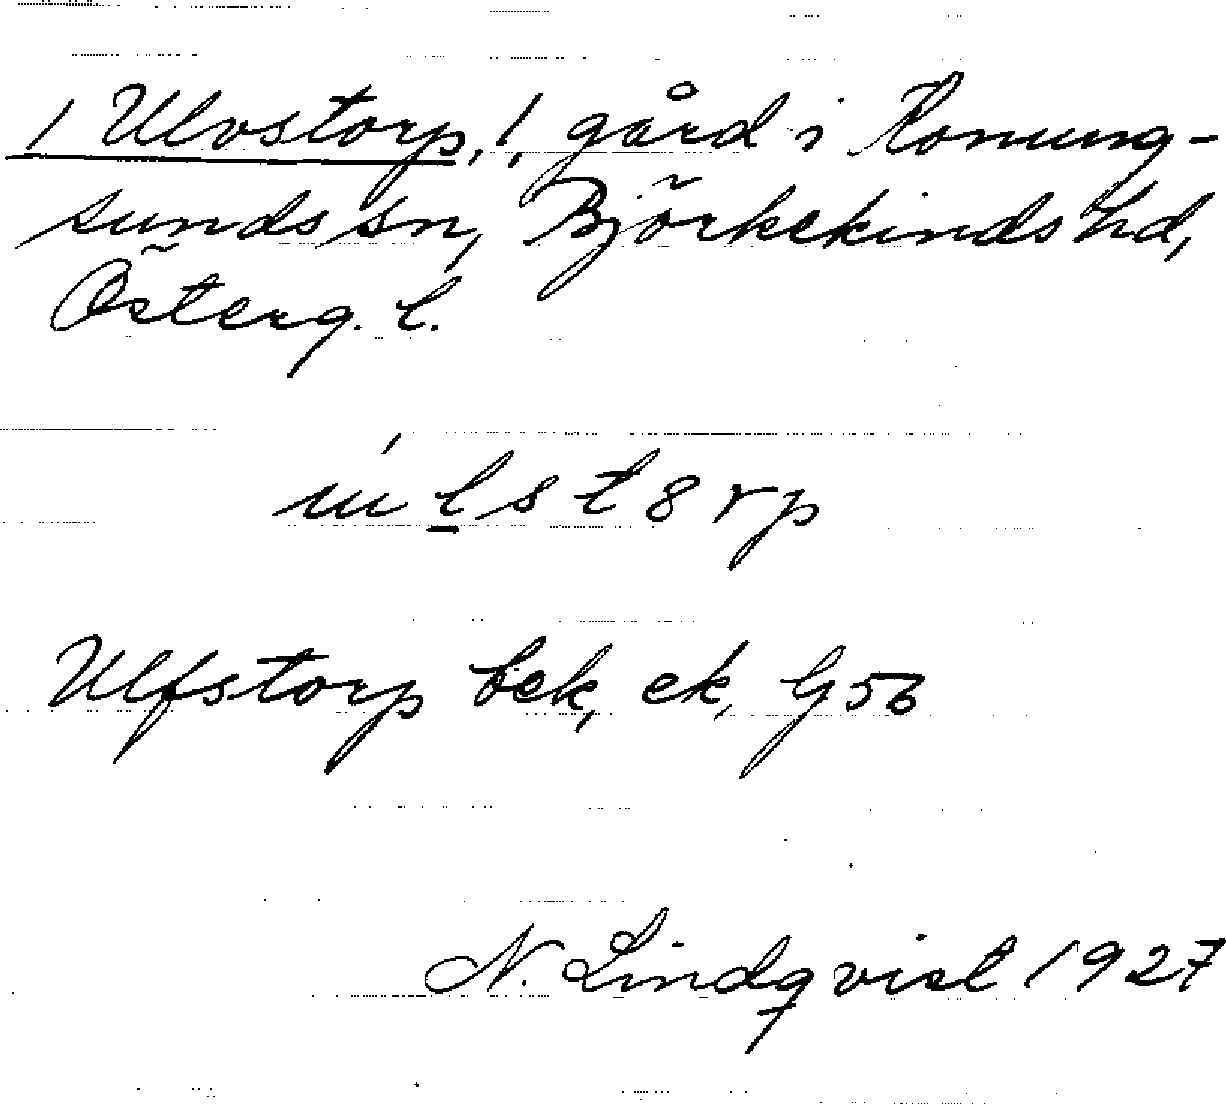 / Ulvstorp, /, gård i Konung-
sunds sn, Björkekinds hd,
Österg. l.
úl s t 8 r p
Ulfstorp bek, ek, G 56
N. Lindqvist 1927